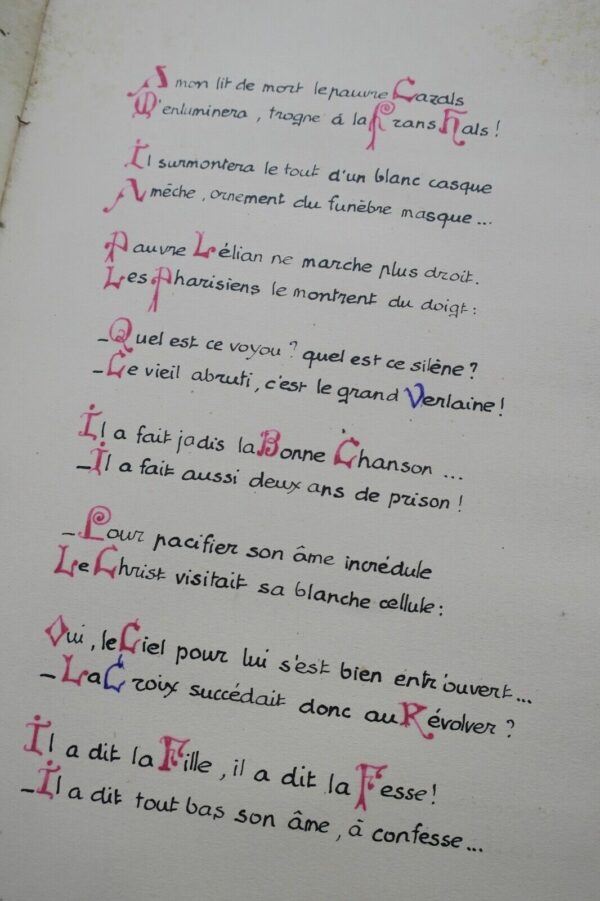 A mon lit de mort le pauvre Cazals
M'enluminera, trogne à la Frans Hals !
Il surmontera le tout d'un blanc casque
A mèche, ornement du funèbre masque...
Pauvre Lélian ne marche plus droit.
Les Pharisiens le montrent du doigt :
_Quel est ce voyou ? quel est ce silène ?
_Ce vieil abruti, c'est le grand Verlaine !
Il a fait jadis la Bonne Chanson ...
_Il a fait aussi deux ans de prison !
_Pour pacifier son âme incrédule
Le Christ visitait sa blanche cellule :
Oui, le Ciel pour lui s'est bien entr'ouvert...
_La Croix succédait donc au Révolver ?
Il a dit la Fille, il a dit la Fesse !
_Il a dit tout bas son âme, à confesse...